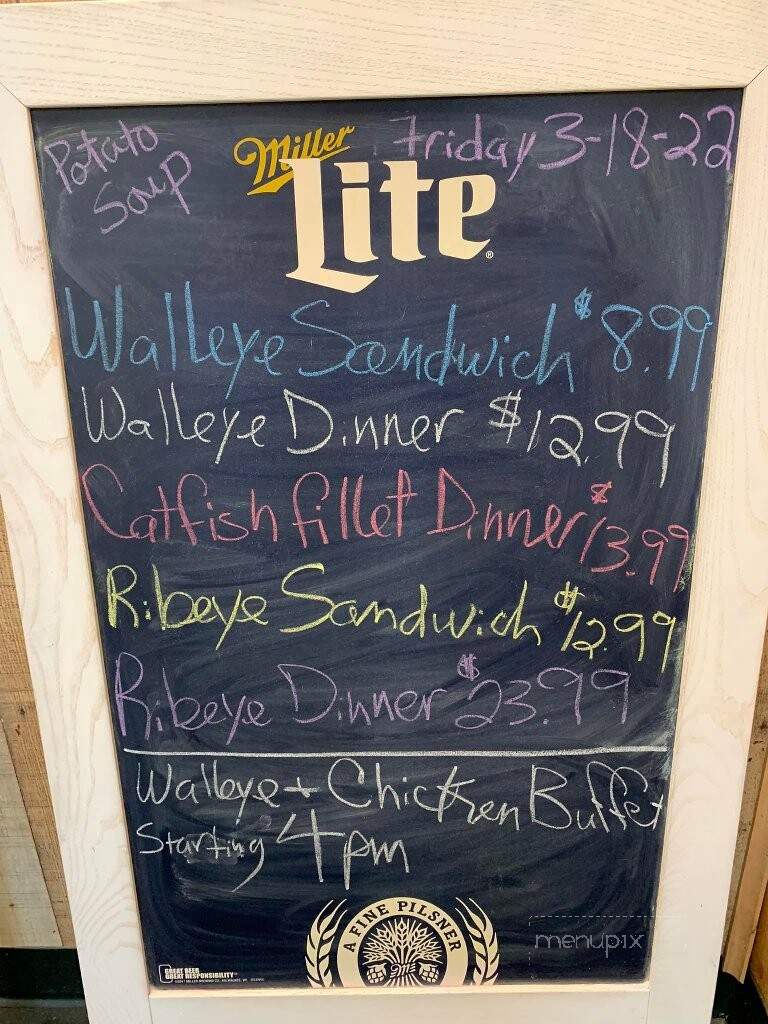 Potato Soup
Miller Lite
Friday 3-18-22
Walleye Sandwich $8.99
Walleye Dinner $12.99
Catfish fillet Dinner $13.99
Ribeye Sandwich $12.99
Ribeye Dinner $23.99
Walleye + Chicken Buffet
Starting 4pm
A FINE PILSNER
GREAT BEER
GREAT RESPONSIBILITY
menupix